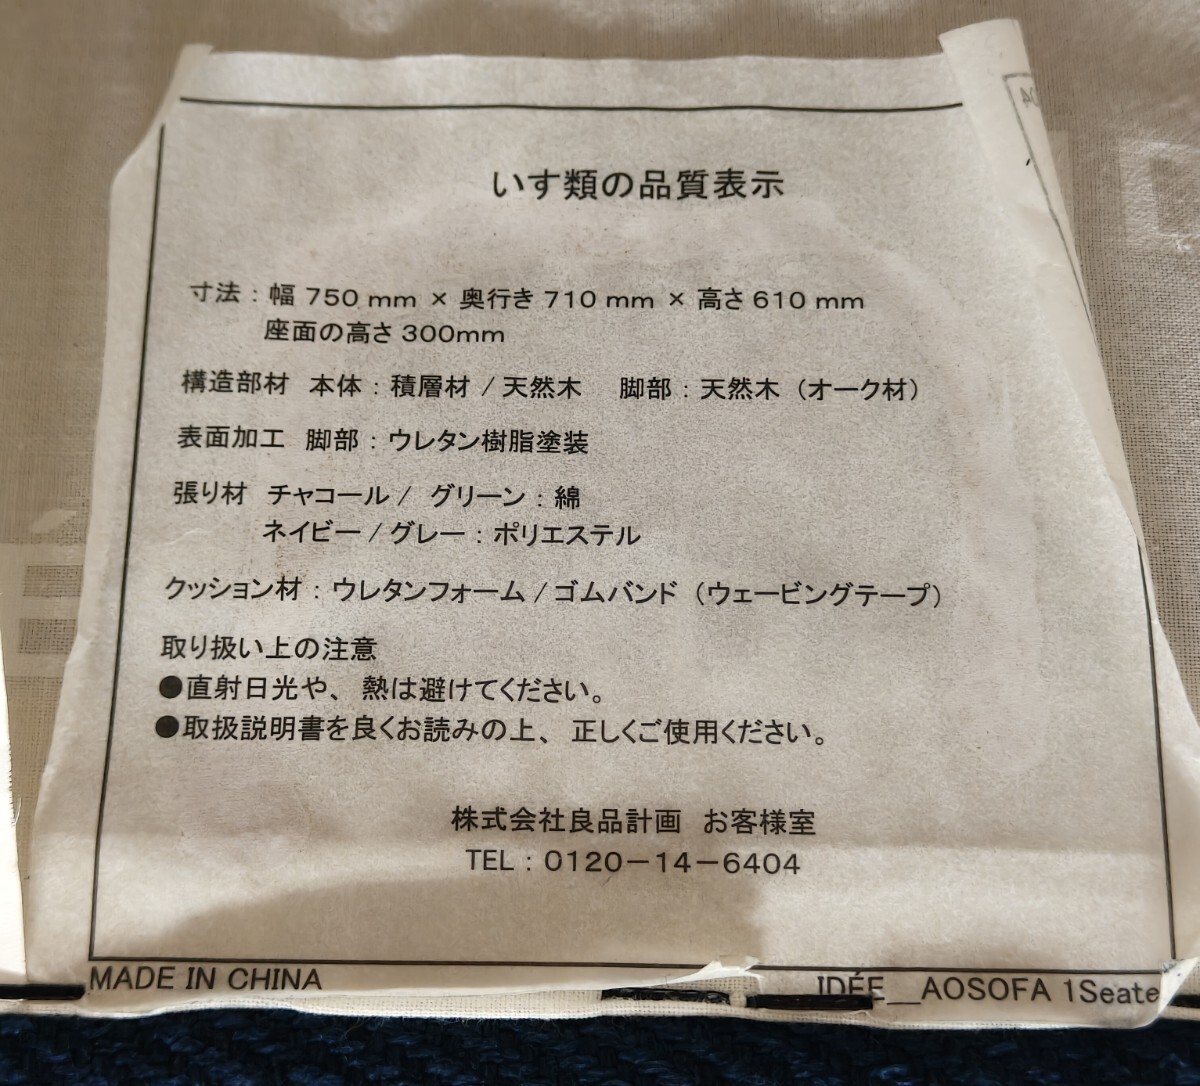 いす類の品質表示
寸法：幅 750 mm × 奥行き 710 mm × 高さ 610 mm
座面の高さ 300mm
構造部材 本体：積層材 / 天然木 脚部：天然木（オーク材）
表面加工 脚部：ウレタン樹脂塗装
張り材 チャコール / グリーン：綿
ネイビー / グレー：ポリエステル
クッション材：ウレタンフォーム / ゴムバンド（ウェービングテープ）
取り扱い上の注意
●直射日光や、熱は避けてください。
●取扱説明書を良くお読みの上、正しくご使用ください。
株式会社良品計画 お客様室
TEL：0120－14－6404
MADE IN CHINA
IDÉE__AOSOFA 1Seate